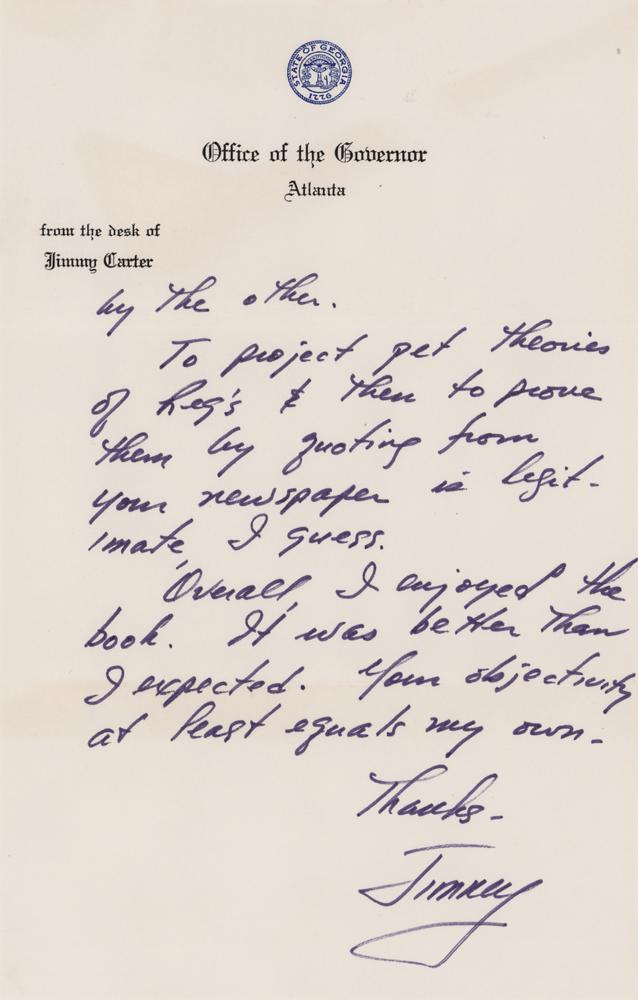 STATE OF GEORGIA
1776
Office of the Governor
Atlanta
from the desk of
Jimmy Carter
by the other.
To project pet theories
of Reg's & then to prove
them by quoting from
your newspaper is legit-
imate, I guess.
Overall, I enjoyed the
book. It was better than
I expected. Your objectivity
at least equals my own-
Thanks-
Jimmy